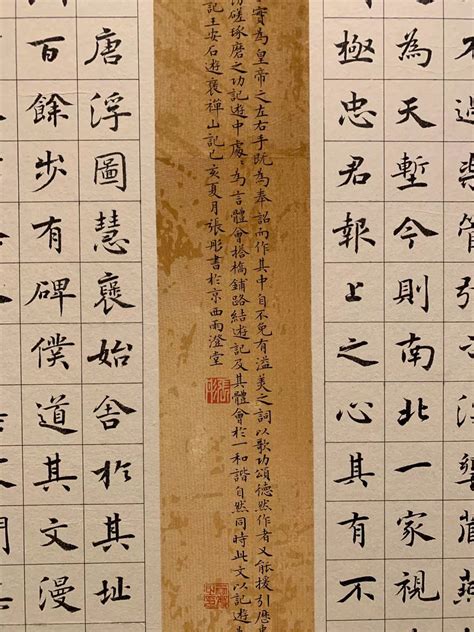 為天塹今則南北一家視
極忠君報上之心其有不
實為皇帝之左右手既為奉詔而作其中自不免有溢美之詞以歌功頌德然作者又能援引歷
切磋琢磨之功記遊中處〻為言體會搭橋鋪路結遊記及其體會於一和諧自然同時此文以記遊
記王安石遊褒禪山記己亥夏月張彤書於京西雨澄堂
唐浮圖慧褒始舍於其址
百餘步有碑僕道其文漫